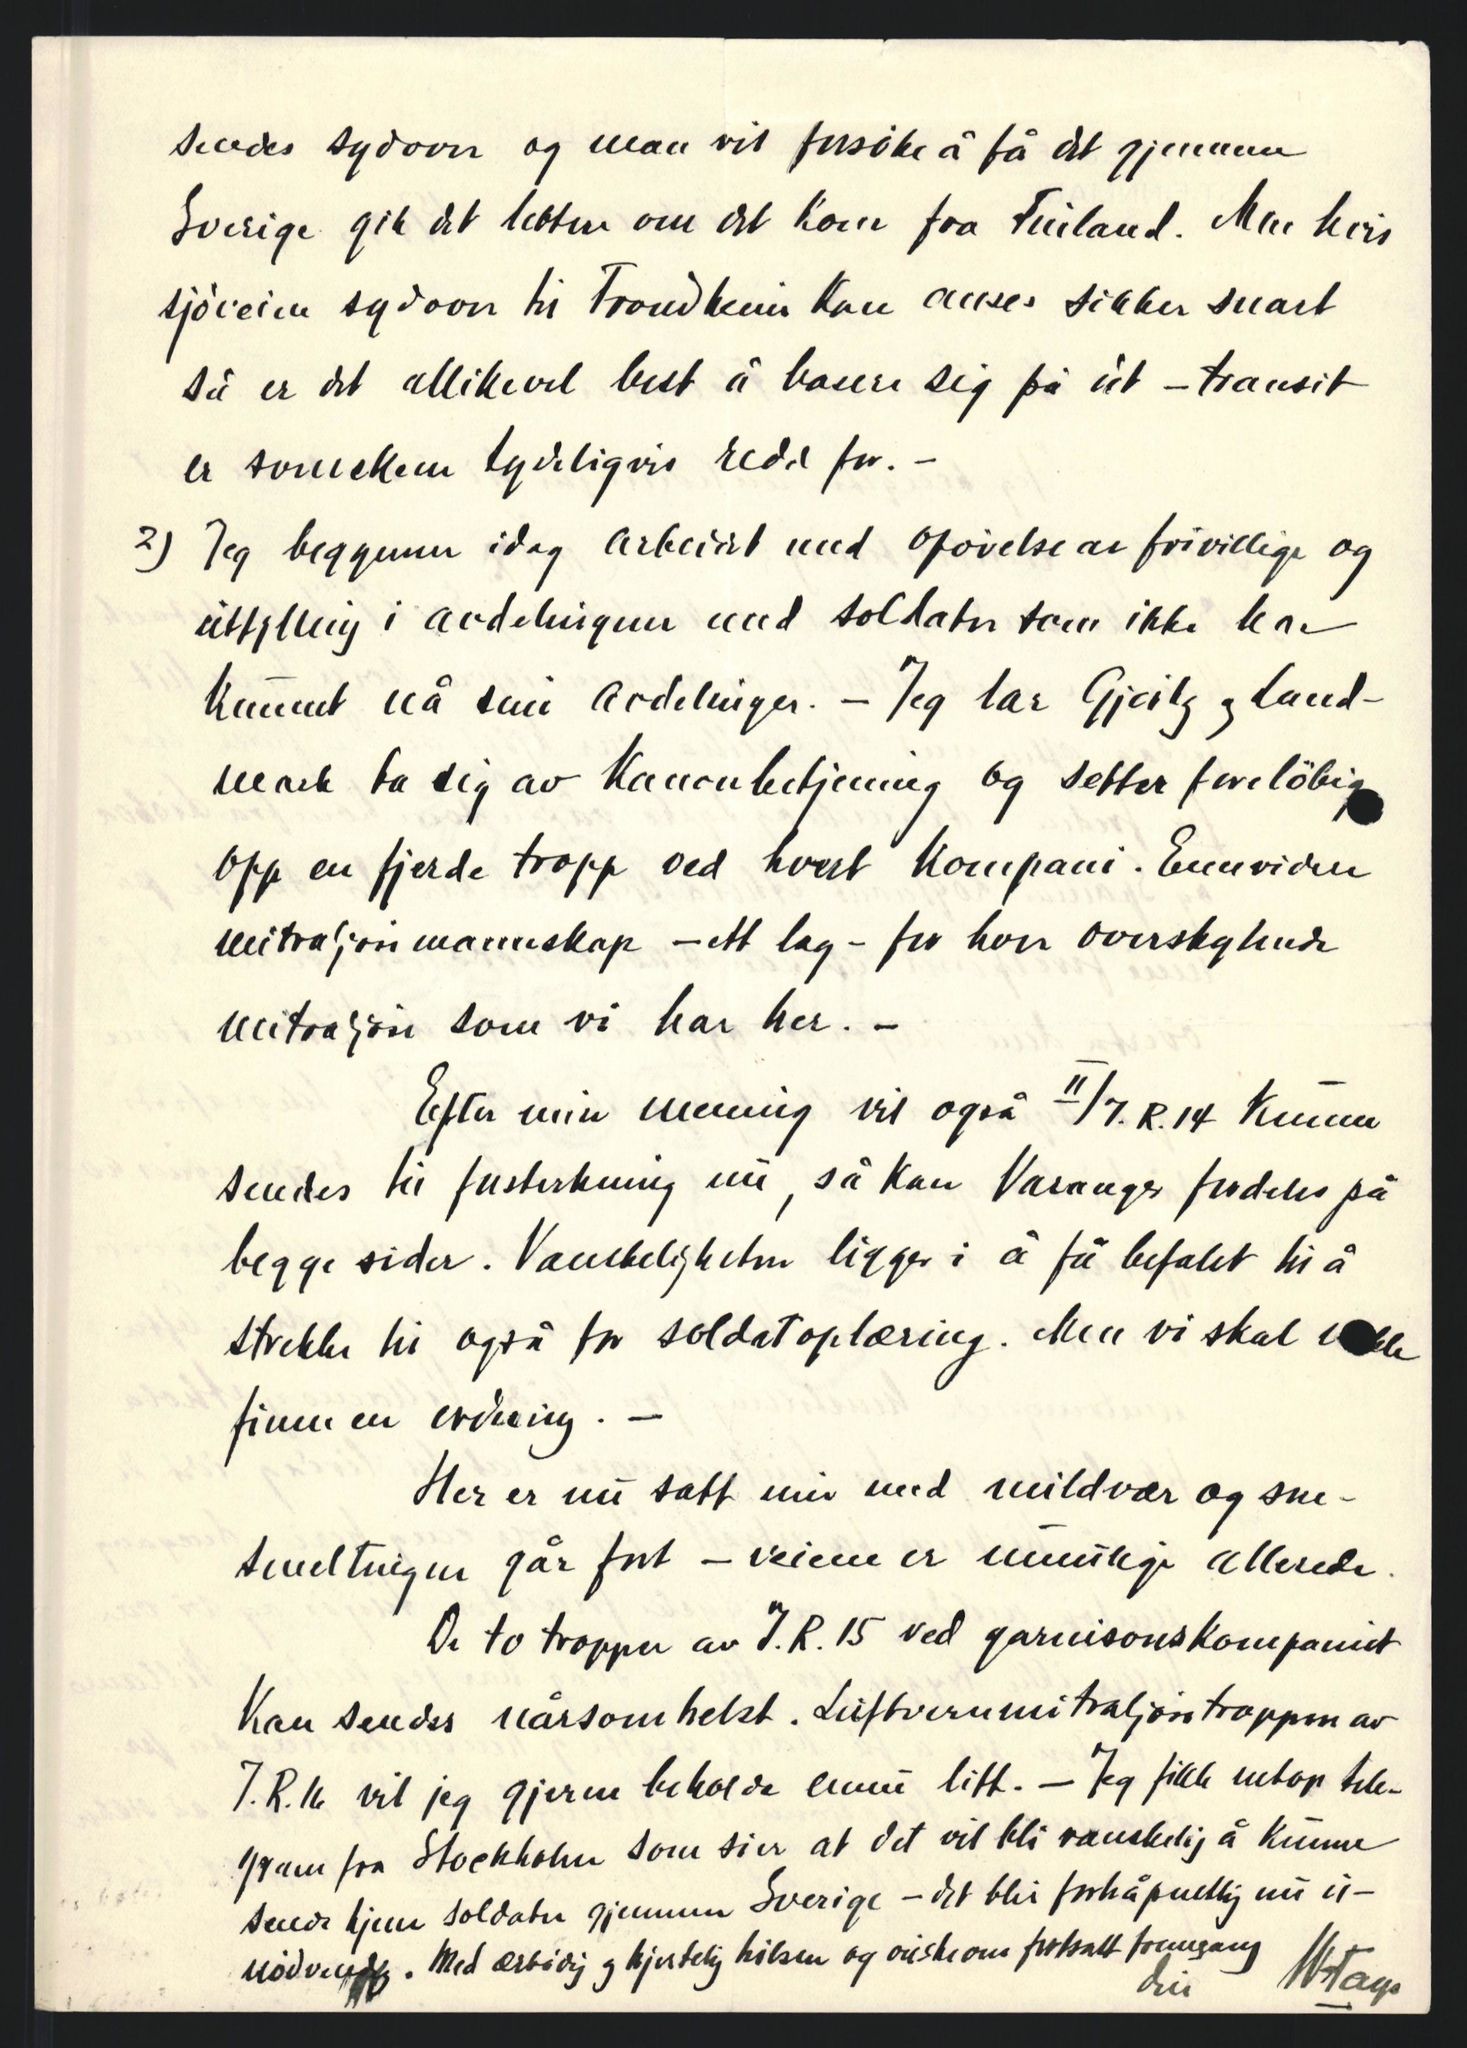 sendes sydover og man vil forsöke å få det gjennem
Sverige gik det lettere om det kom fra Finland. Men hvis
sjöveien sydover til Trondheim kan anses sikker snart
så er det allikevel best å basere sig på det – transit
er svenskene tydeligvis redd for. –
2) Jeg begynner idag arbeidet med opövelse av frivillige og
utfylling i avdelingene med soldater som ikke har
kunnet nå sine avdelinger. – Jeg lar Gjertz og Land-
mark ta sig av kanonbetjening og setter forelöbig
opp en fjerde tropp ved hvert kompani. Ennvidere
mitraljösemannskap – ett lag – for hver overskytende
mitraljöse som vi har her. –
Efter min mening vil også II/I.R. 14 kunne
sendes til forsterkning nu, så kan Varanger fordeles på
begge sider. Vanskeligheten ligger i å få befalet til å
strekke til også for soldatoplæring. Men vi skal nokk
finne en ordning. –
Her er nu satt inn med mildvær og sne-
smeltningen går fort – veiene er umulige allerede.
De to tropper av I.R. 15 ved garnisonskompaniet
kan sendes nårsomhelst. Luftvernmitraljösetroppen av
I.R. 16 vil jeg gjerne beholde ennu litt. – Jeg fikk netop tele-
gram fra Stockholm som sier at det vil bli vanskelig å kunne
sende hjem soldater gjennem Sverige – det blir forhåpentlig nu u-
nödvendig. Med ærbödig og hjertelig hilsen og önske om fortsatt fremgang
din